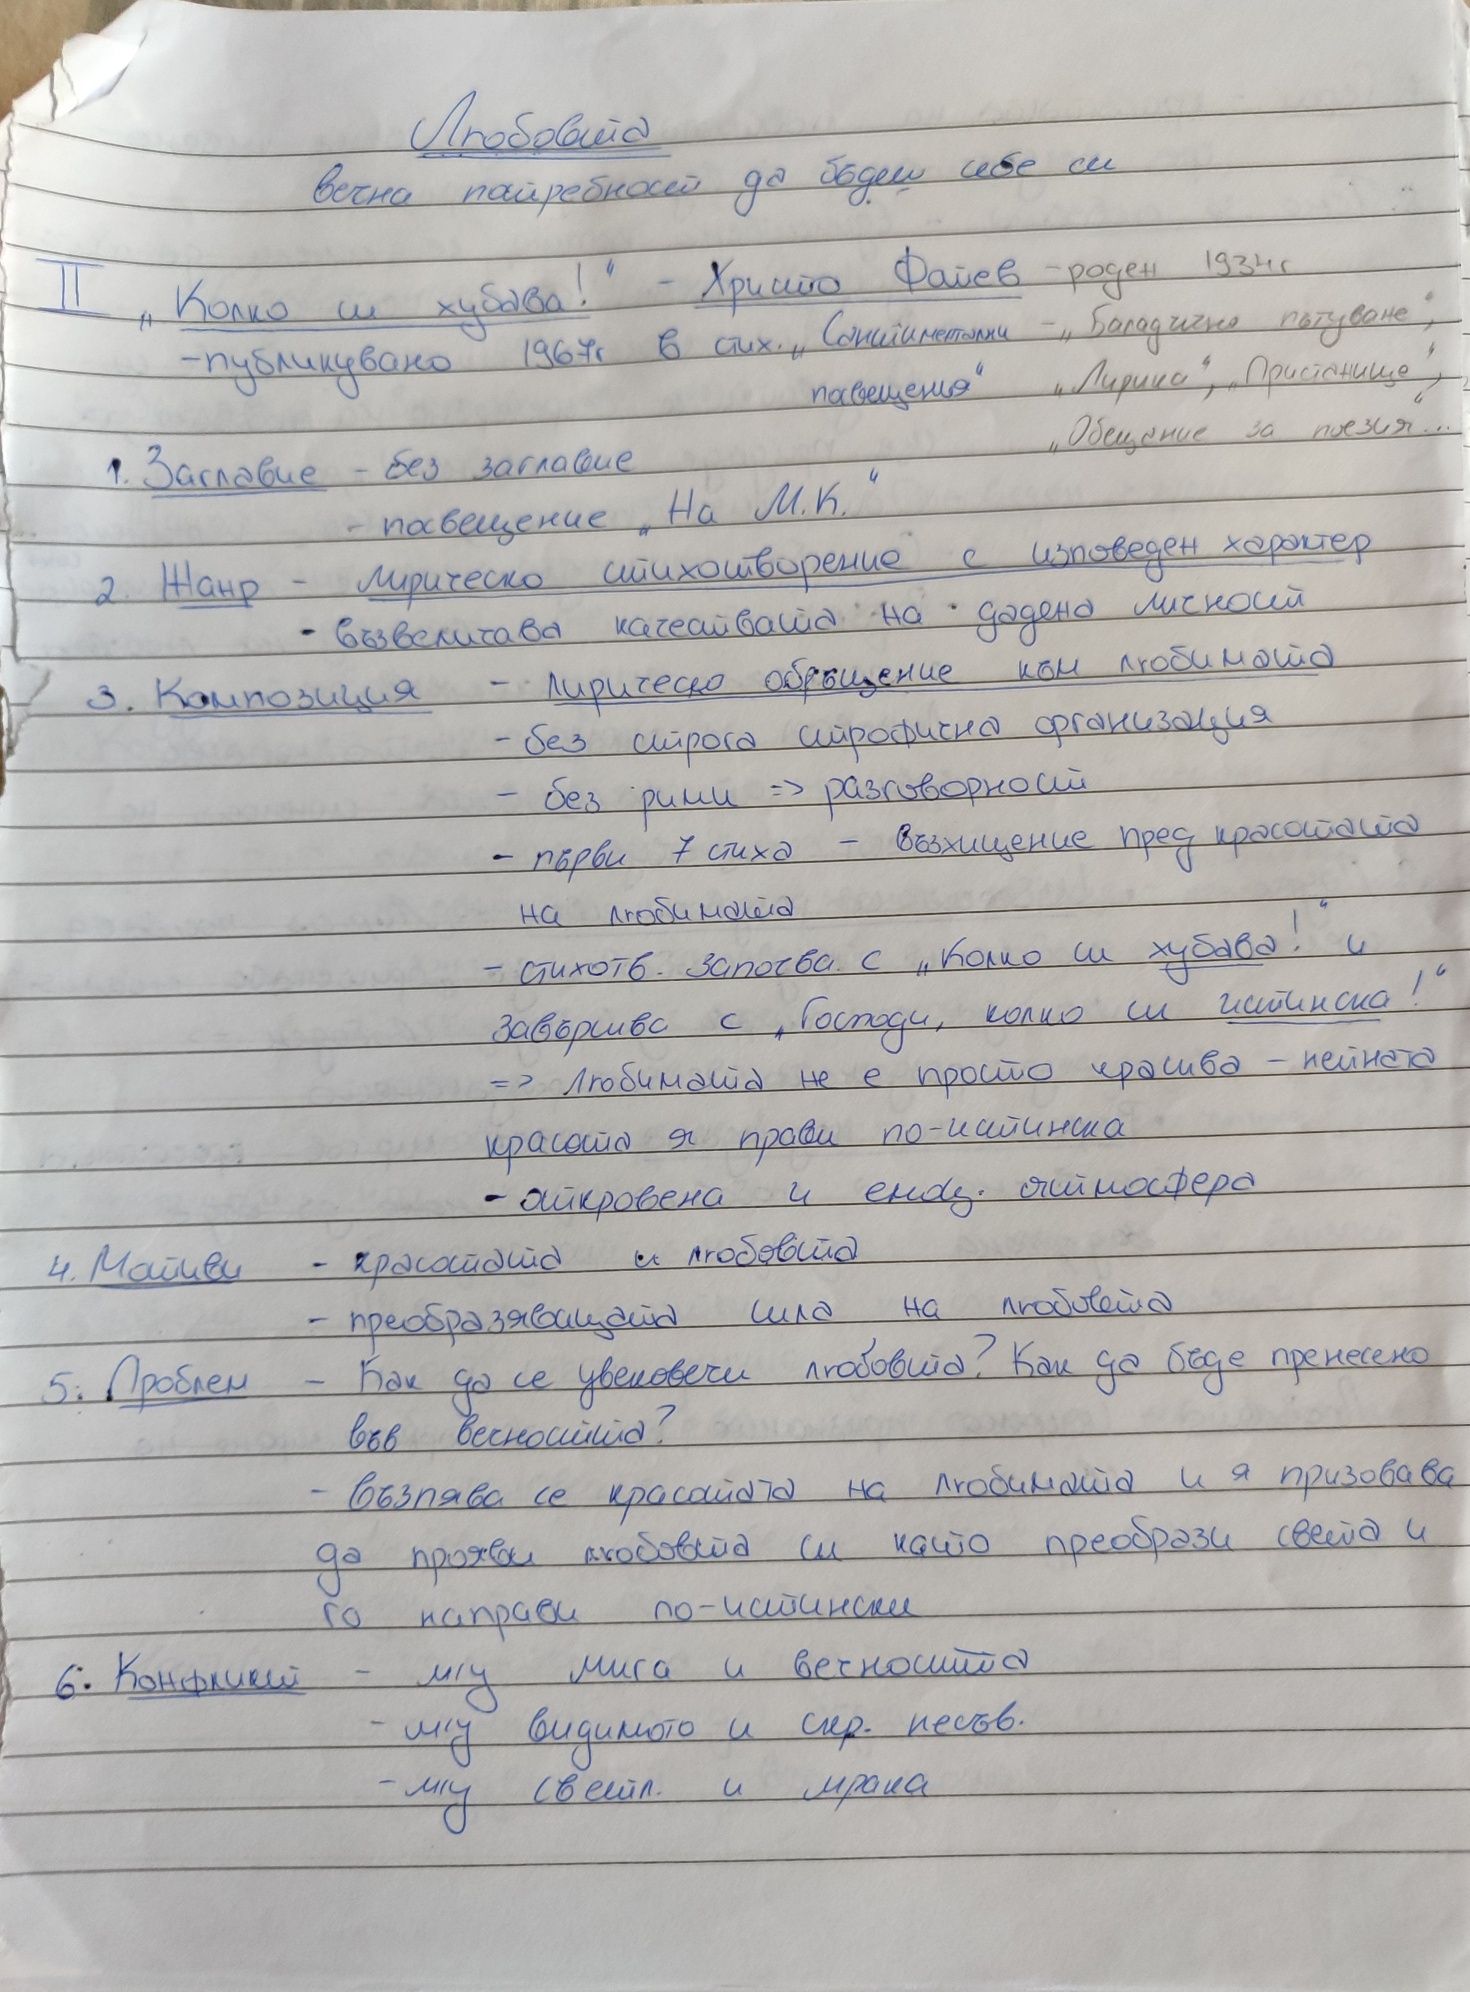 Любовта
вечна потребност да бъдем себе си
II „Колко си хубава!“ - Христо Фотев - роден 1934г
- публикувано 1967г в стих. „Сантиментални - „Баладично пътуване“,
посвещения“ „Лирика“, „Пристанище“,
„Обещание за поезия“...
1. Заглавие - без заглавие
- посвещение „На М.К.“
2. Жанр - лирическо стихотворение с изповеден характер
- възвеличава качествата на дадена личност
3. Композиция - лирическо обръщение към любимата
- без строга строфична организация
- без рими => разговорност
- първи 7 стиха - възхищение пред красотата
на любимата
- стихотв. започва с „Колко си хубава!“ и
завършва с „Господи, колко си истинска!“
=> любимата не е просто красива - нейната
красота я прави по-истинска
- откровена и емоц. атмосфера
4. Мотиви - красотата и любовта
- преобразяващата сила на любовта
5. Проблем - Как да се увековечи любовта? Как да бъде пренесено
във вечността?
- възпява се красотата на любимата и я призовава
да прояви любовта си като преобрази света и
го направи по-истински
6. Конфликт - м/у мига и вечността
- м/у видимото и скр. несъв.
- м/у светл. и мрака